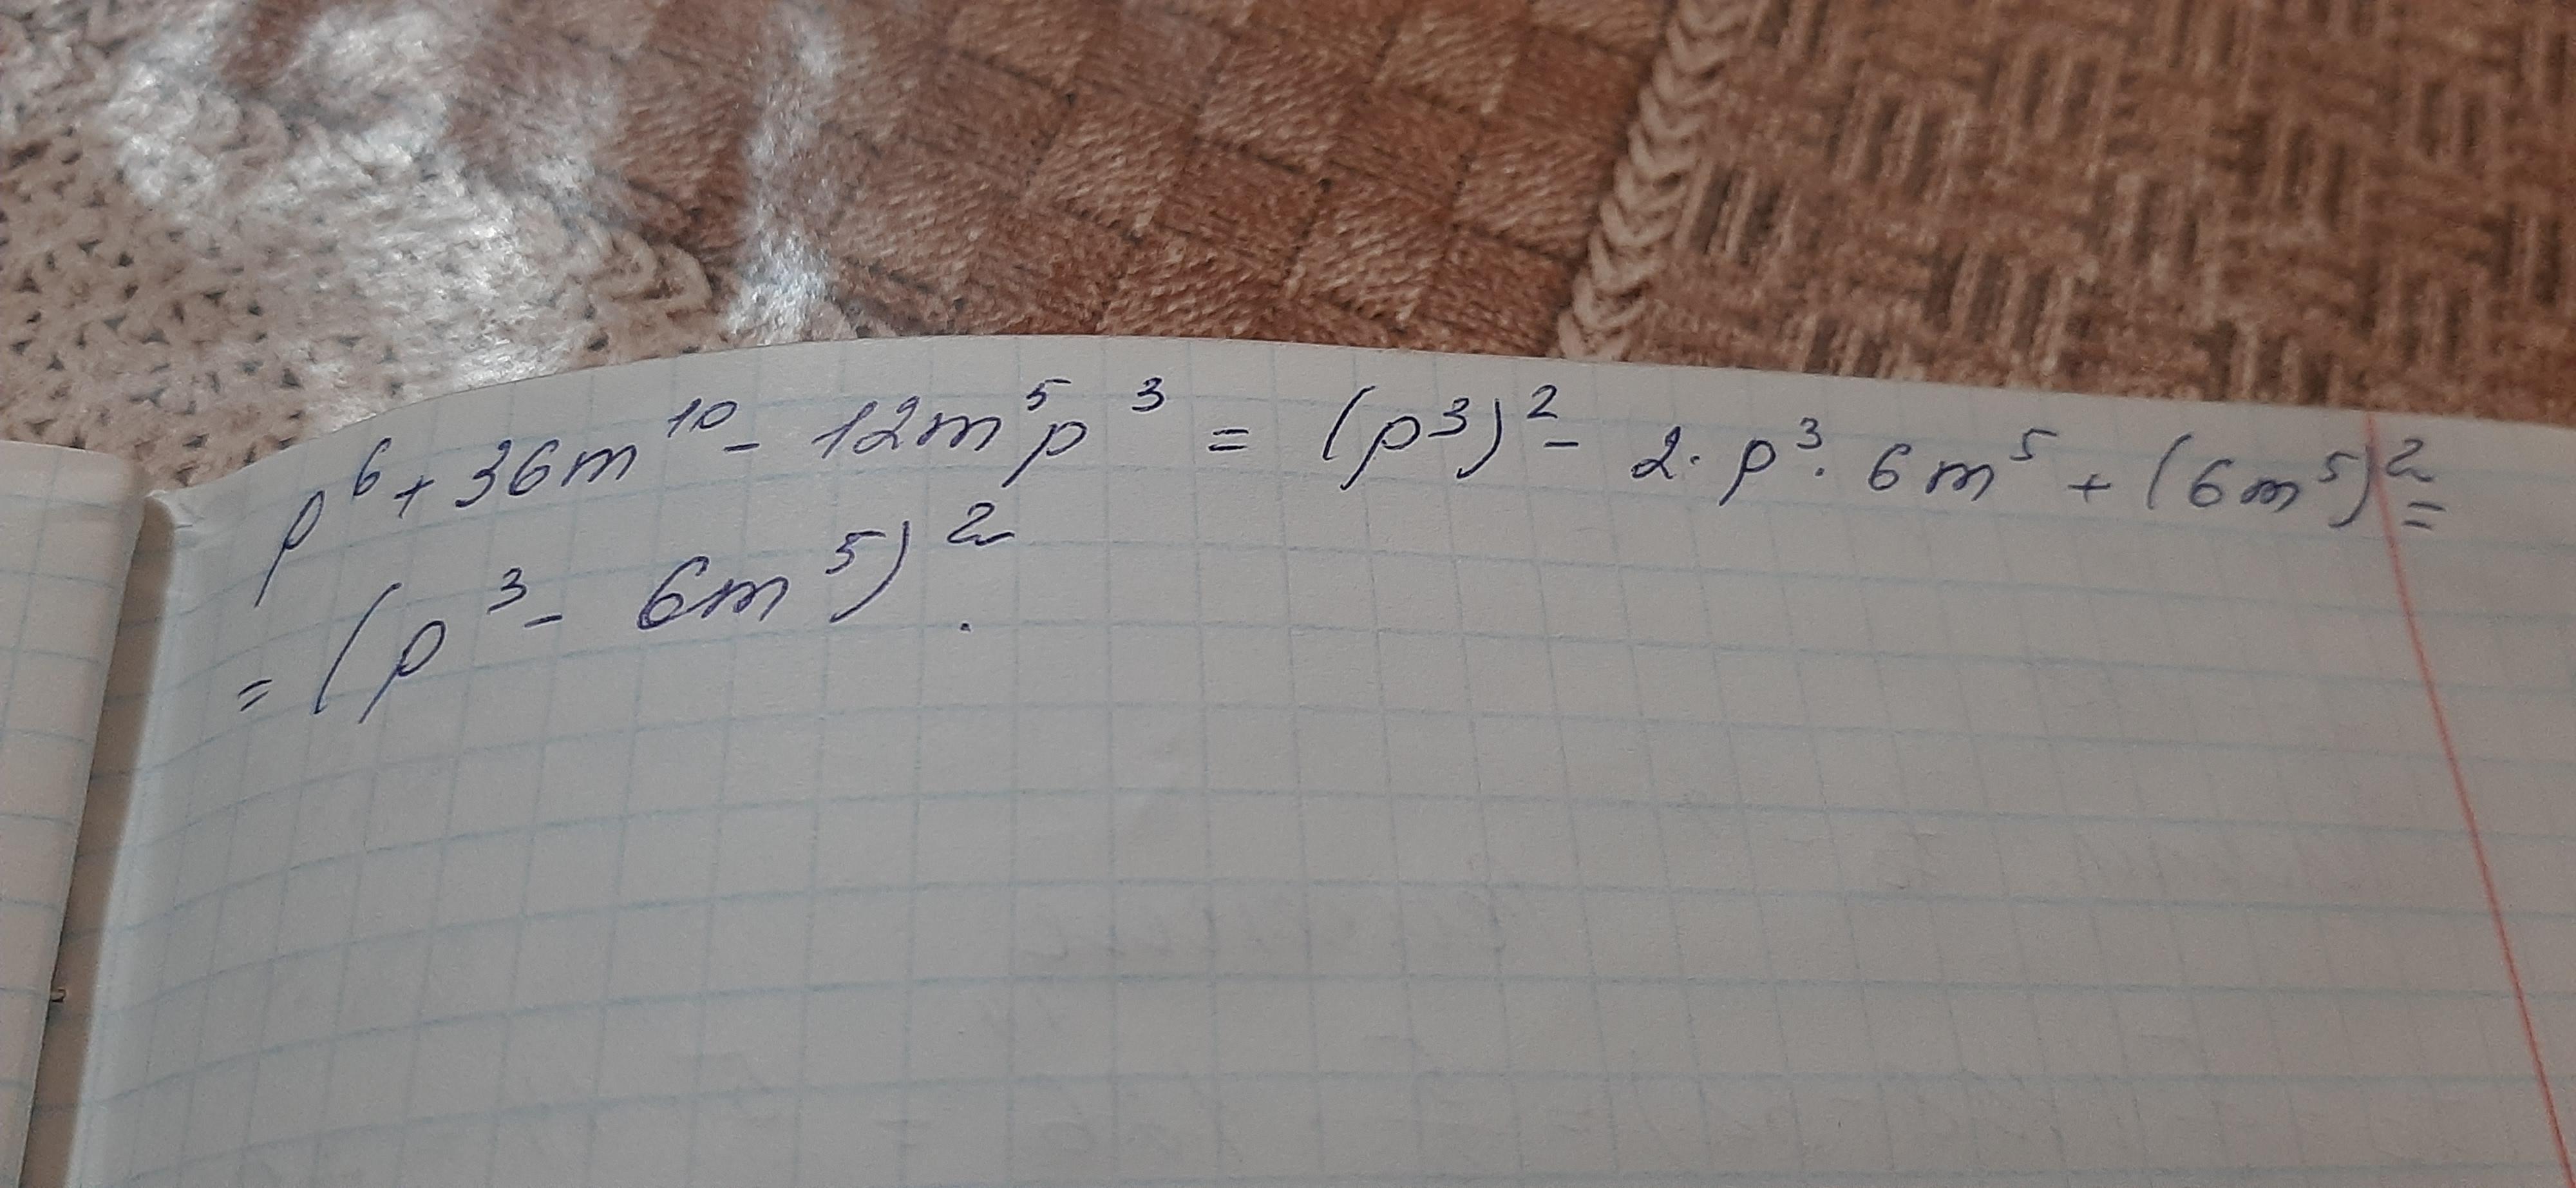 p⁶ + 36m¹⁰ - 12m⁵p³ = (p³)² - 2 · p³ · 6m⁵ + (6m⁵)² =
= (p³ - 6m⁵)².